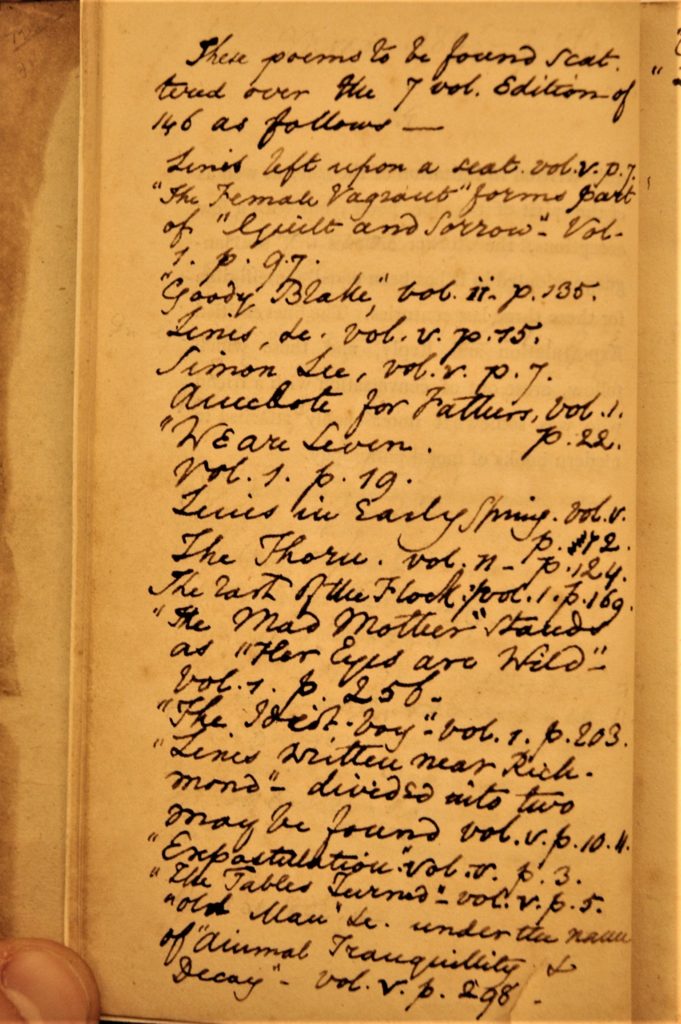 These poems to be found scat.
tered over the 7 vol. Edition of
146 as follows —
Lines left upon a seat. vol. v. p. 7.
"The Female Vagrant" forms part
of "Guilt and Sorrow". Vol.
1. p. 97.
"Goody Blake", vol. ii. p. 135.
Lines, &c. vol. v. p. 15.
Simon Lee, vol. v. p. 7.
Anecdote for Fathers, vol. 1.
p. 22.
"WE are Seven.
Vol. 1. p. 19.
Lines in Early Spring. vol. v.
p. 12.
The Thorn. vol. 11 - p. 124.
The Last of the Flock: vol. 1. p. 169.
"The Mad Mother" stands
as "Her Eyes are Wild"-
vol. 1. p. 256.
"The Idiot-boy"- vol. 1. p. 203.
"Lines written near Rich-
mond"- divided into two
may be found vol. v. p. 10. 11.
"Expostulation" vol. v. p. 3.
"The Tables Turned"- vol. v. p. 5.
"old Man" &c. under the name
of "Animal Tranquillity &
Decay"- vol. v. p. 298.